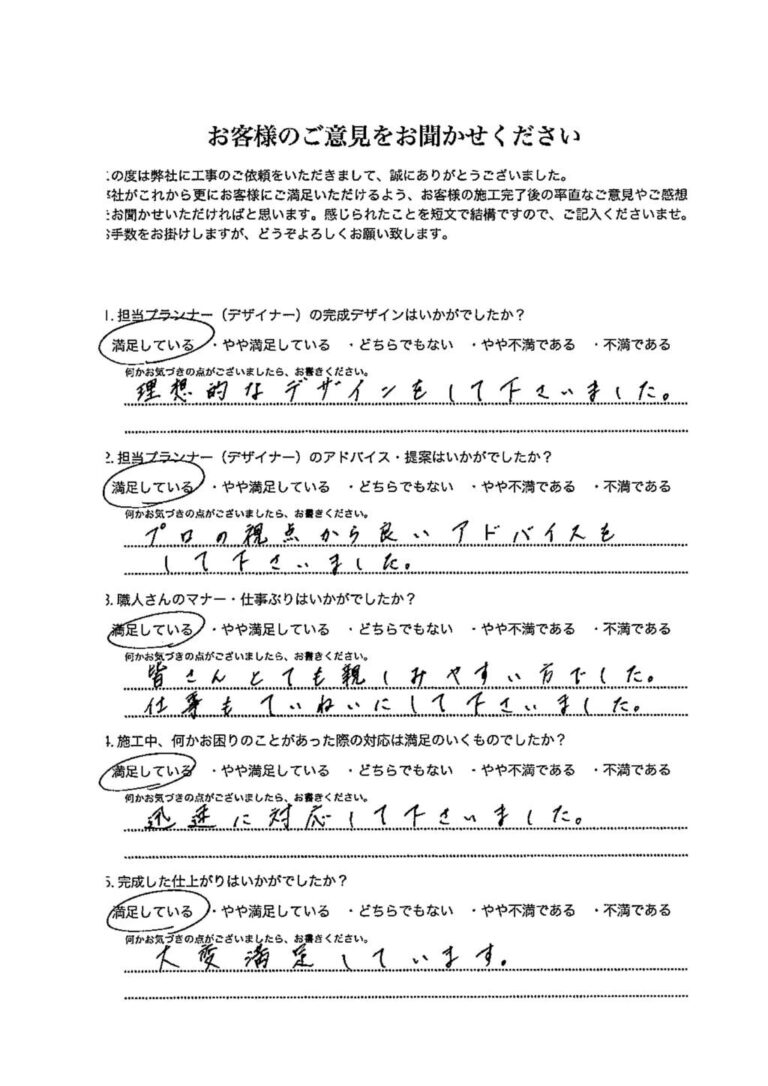 お客様のご意見をお聞かせください
の度は弊社に工事のご依頼をいただきまして、誠にありがとうございました。
社がこれから更にお客様にご満足いただけるよう、お客様の施工完了後の率直なご意見やご感想
お聞かせいただければと思います。感じられたことを短文で結構ですので、ご記入くださいませ。
手数をお掛けしますが、どうぞよろしくお願い致します。
1. 担当プランナー（デザイナー）の完成デザインはいかがでしたか？
満足している ・やや満足している ・どちらでもない ・やや不満である ・不満である
何かお気づきの点がございましたら、お書きください。
理想的なデザインをして下さいました。
2. 担当プランナー（デザイナー）のアドバイス・提案はいかがでしたか？
満足している ・やや満足している ・どちらでもない ・やや不満である ・不満である
何かお気づきの点がございましたら、お書きください。
プロの視点から良いアドバイスを
して下さいました。
3. 職人さんのマナー・仕事ぶりはいかがでしたか？
満足している ・やや満足している ・どちらでもない ・やや不満である ・不満である
何かお気づきの点がございましたら、お書きください。
皆さんとても親しみやすい方でした。
仕事もていねいにして下さいました。
4. 施工中、何かお困りのことがあった際の対応は満足のいくものでしたか？
満足している ・やや満足している ・どちらでもない ・やや不満である ・不満である
何かお気づきの点がございましたら、お書きください。
迅速に対応して下さいました。
5. 完成した仕上がりはいかがでしたか？
満足している ・やや満足している ・どちらでもない ・やや不満である ・不満である
何かお気づきの点がございましたら、お書きください。
大変満足しています。